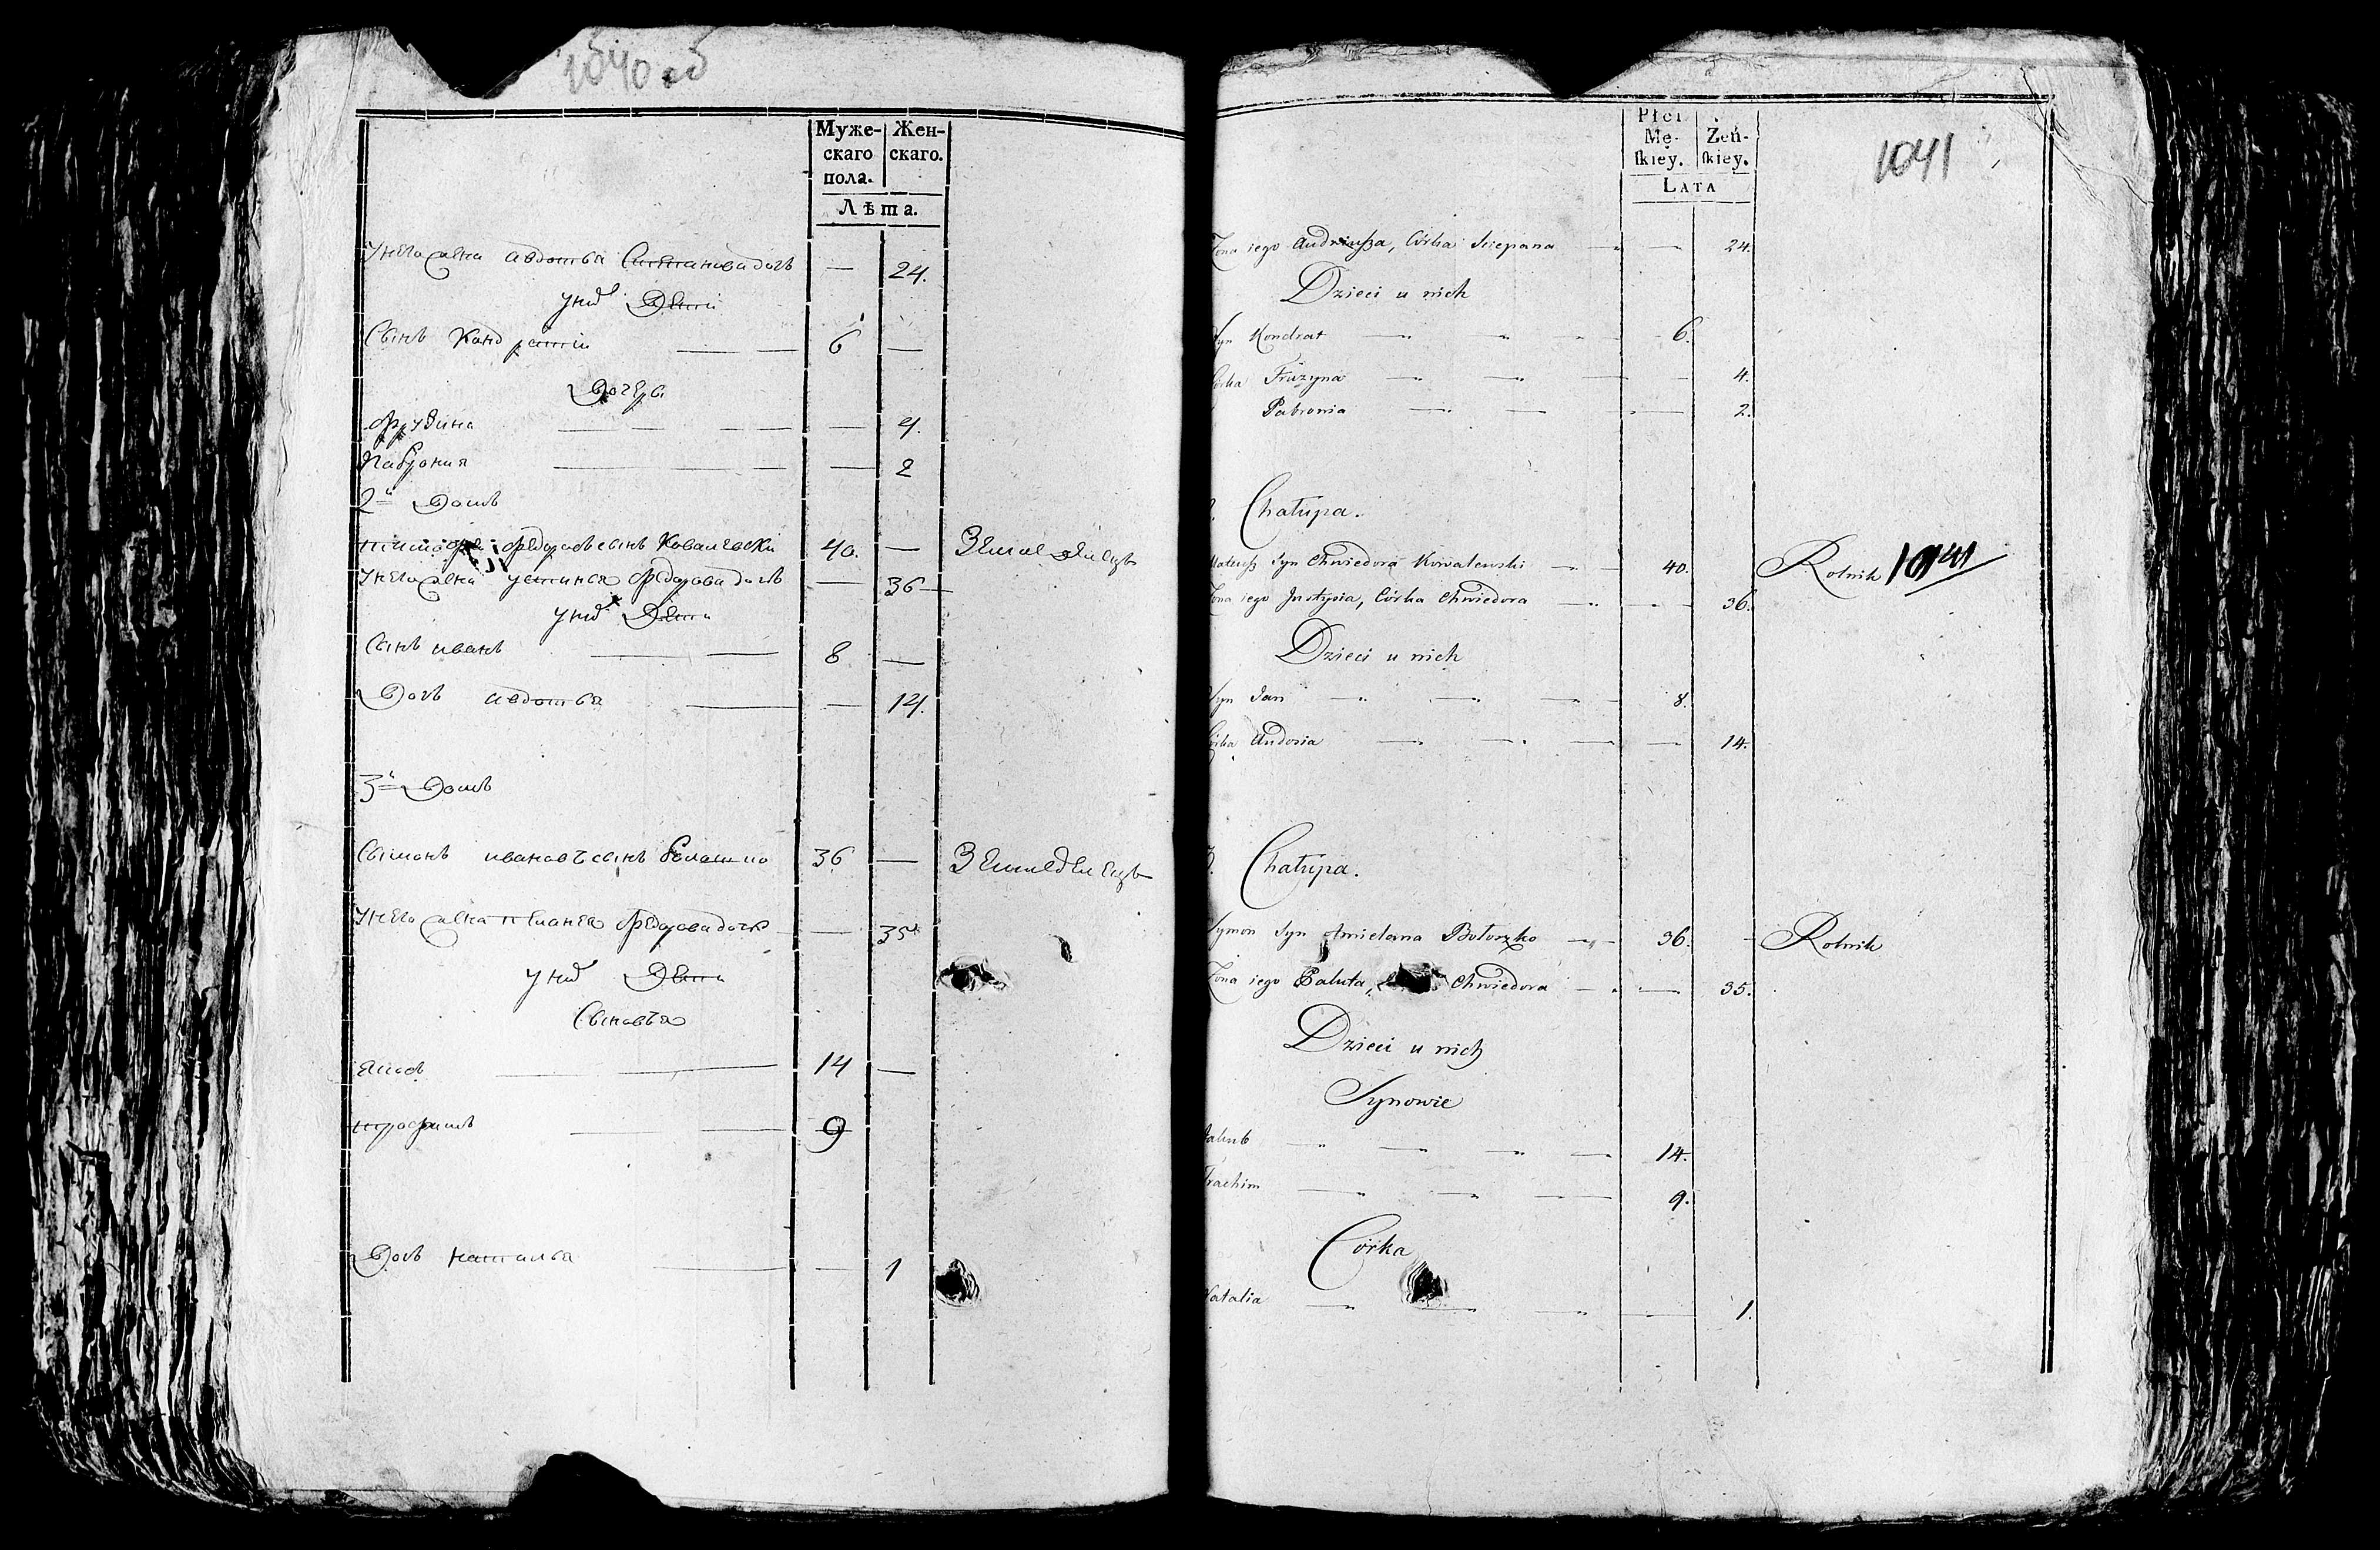 1040 об
Муже- Жен-
скаго скаго.
пола.
Лѣта.
У него жена авдотья Степанова дочь — 24.
у нихъ Дети
Сынъ Кондратій — — 6 —
Дочери
Фрузина — — — 4.
Паброния — — — 2
2й Домъ
Федоровъ сынъ Ковалевски 40. — Земледелецъ
У него жена устинея Федорова дочь — 36
у нихъ Дети
Сынъ иванъ — — 8 —
Дочь авдотья — — 14.
3й Домъ
Сымонъ ивановъ сынъ 36 — Земледелецъ
У него жена пеланея Федорова дочь — 35
у нихъ Дети
Сыновья
Якова — — 14 —
трофимъ — — 9
Дочь наталья — — 1
Płci
Mę- Żeń-
skiey. skiey.
LATA
1041
Żona iego Audziusza, Córka Sciepana — — 24.
Dzieci u nich
Syn Kondrat — — — 6.
Córka Fruzyna — — — — 4.
Pabronia — — — 2.
2. Chałupa.
Mateusz Syn Chwiedora Kowalewski — 40. Rolnik 1041
Żona iego Justysia, Córka Chwiedora — — 36.
Dzieci u nich
Syn Jan — — — 8.
Córka Audosia — — — — 14.
3. Chałupa.
Symon Syn Amielana Bołoszko — 36. — Rolnik
Żona iego Paluta, Chwiedora — — 35.
Dzieci u nich
Synowie
Jakub — — — — 14.
Trachim — — — 9.
Córka
Natalia — — — — 1.